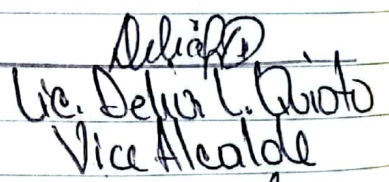 Lic. Delia L. Quioto
Vice Alcalde